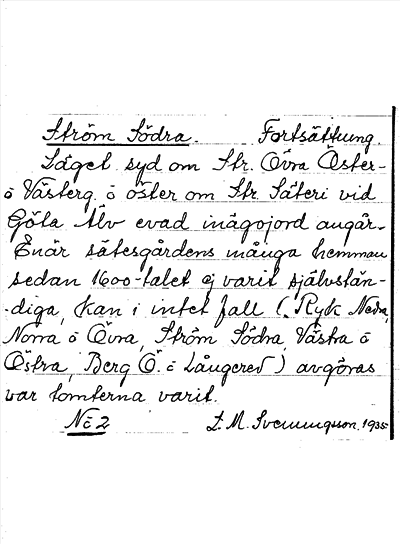 Ström Södra. Fortsättning.
Läget syd om Str. Övra Öster-
o Västerg. o öster om Str. Säteri vid
Göta Älv evad inägojord angår.
Enär sätesgårdens många hemman
sedan 1600-talet ej varit självstän-
-diga, kan i intet fall (Ryk Nedra,
Norra o Övra, Ström Södra, Västra o
Östra, Berg Ö. o Långered) avgöras
var tomterna varit.
No 2 L. M. Svenungsson. 1935